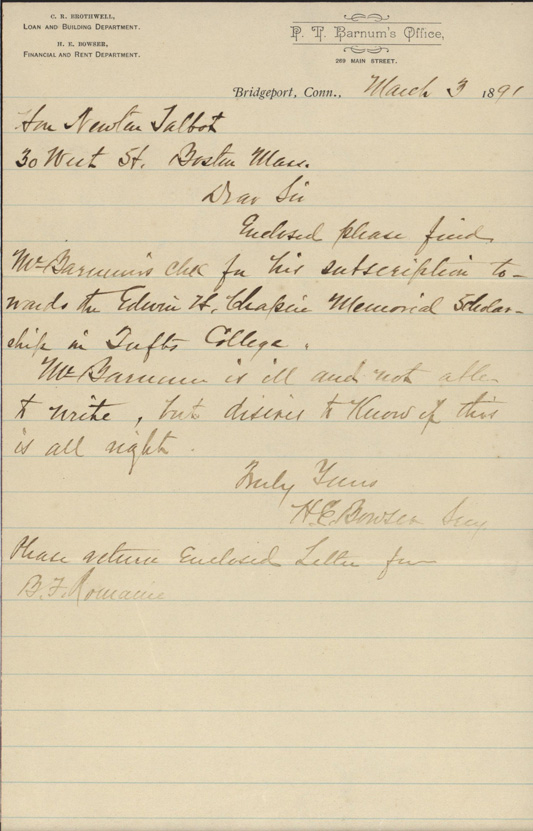 C. R. BROTHWELL,
LOAN AND BUILDING DEPARTMENT.
H. E. BOWSER,
FINANCIAL AND RENT DEPARTMENT.
P. T. Barnum's Office,
269 MAIN STREET.
Bridgeport, Conn., March 3 1891
Hon Newton Talbot
30 West St. Boston Mass.
Dear Sir
Enclosed please find
Mr Barnum's chk for his subscription to-
wards the Edwin H. Chapin Memorial Scholar-
ship in Tufts College.
Mr Barnum is ill and not able
to write, but desires to know if this
is all right.
Truly Yours
H. E. Bowser Secy
Please return Enclosed Letter from
B. F. Romaine